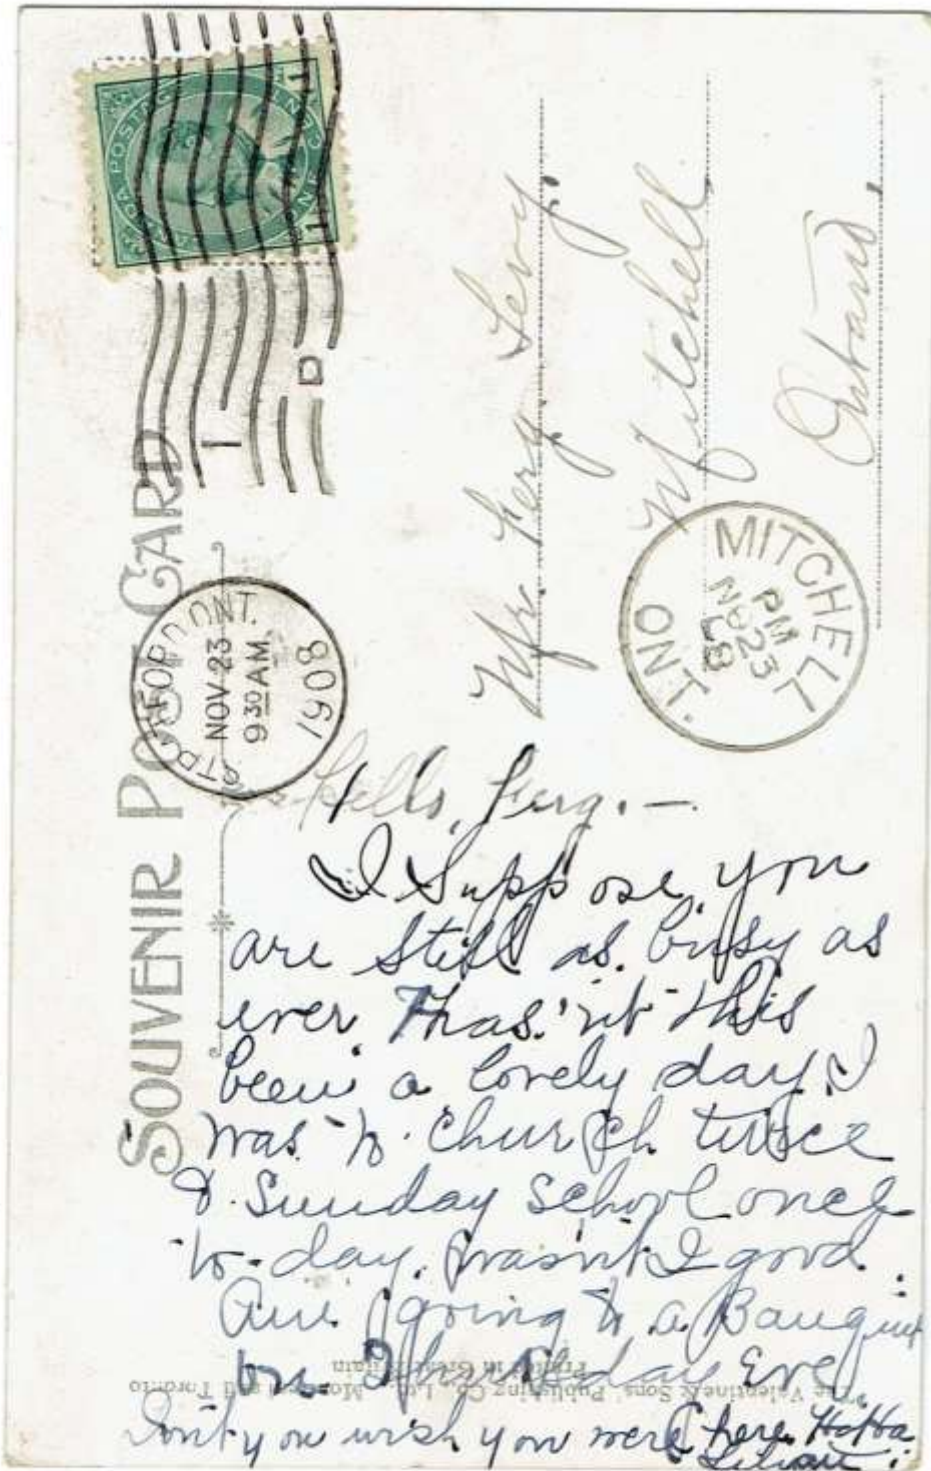 SOUVENIR POST CARD
CANADA POSTAGE
ONE CENT
1 1
STRATFORD ONT.
NOV 23
9 30 AM
1908
1
D
Mr. Ferg. Levy.
Mitchell
Ontario.
MITCHELL
PM
NO 23
08
ONT.
Hello, Ferg. —
I Suppose you
are still as busy as
ever. Has'nt this
been a lovely day. I
was to Church twice
& Sunday School once
to-day. wasn't I good.
Am going to a Banquet
on Thursday Eve.
Don't you wish you were here. Ha Ha
The Valentine & Sons' Publishing Co., Ltd., Montreal and Toronto
Printed in Great Britain